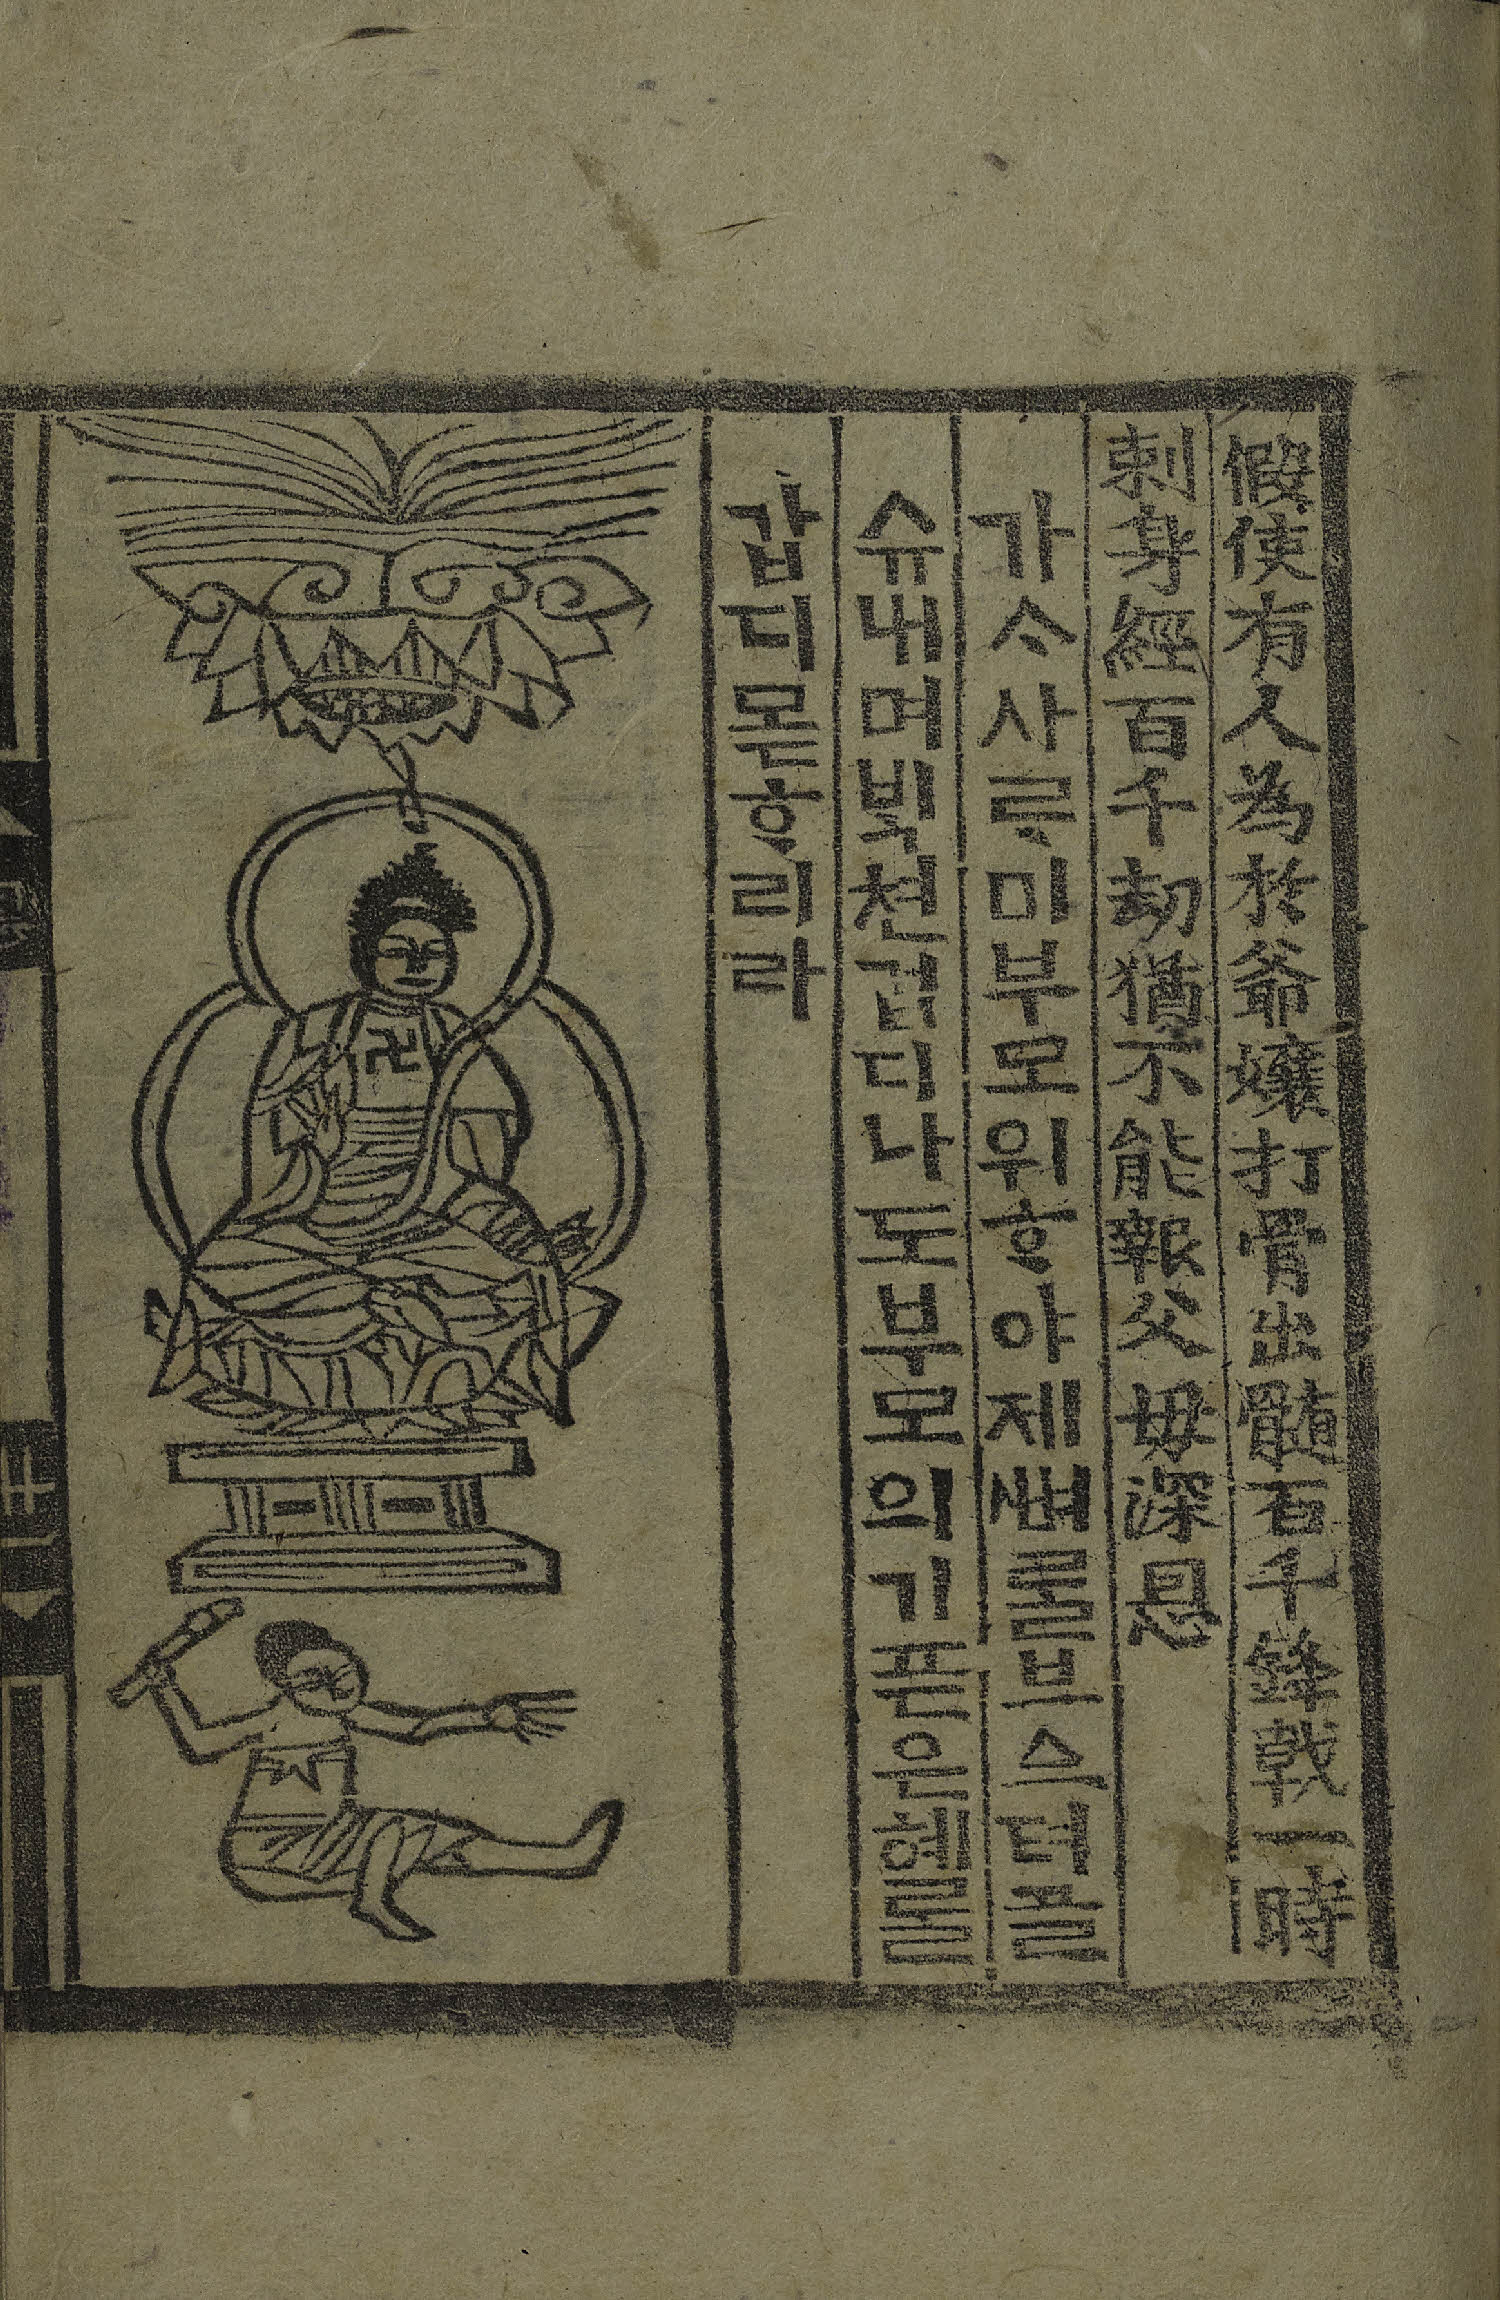 假使有人為於爺孃打骨出髓百千鋒戟一時
刺身經百千劫猶不能報父母深恩
가ᄉᆞ사ᄅᆞ미부로위ᄒᆞ야제ᄲᅧ를브스텨골
슈내며ᄇᆡᆨ쳔겁디나도부로의기픈은혜를
갑디몯ᄒᆞ리라
卍